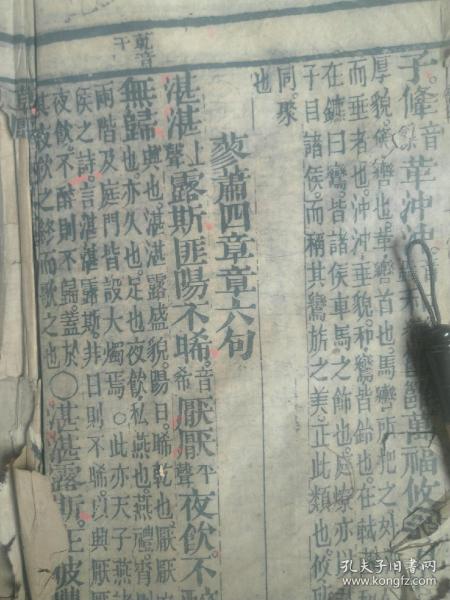 子。鞗音條革沖沖
厚貌。鞗轡也。革轡首也。馬轡所把之外
而垂者也。沖沖垂貌。和鸞皆鈴也。在軾
在鑣曰鸞。皆諸侯車馬之飾也。庭燎亦以
子目諸侯。而稱其鸞旂之美。正此類也。攸
同。聚
也
萬福攸
蓼蕭四章章六句
湛湛上聲露斯匪陽不晞音希厭厭平聲夜飲不
無歸興也。湛湛露盛貌。陽日。晞乾也。厭厭
也。亦久也。足也。夜飲私燕也。燕禮宵則
兩階及庭門皆設大燭焉。○此亦天子燕
侯之詩。言湛湛露斯。非日則不晞。以興厭
夜飲。不醉則不歸。蓋於
其夜飲之終而歌之也○湛湛露斯。在彼豐
乾音
干
孔夫子旧书网
www.kongfz.com